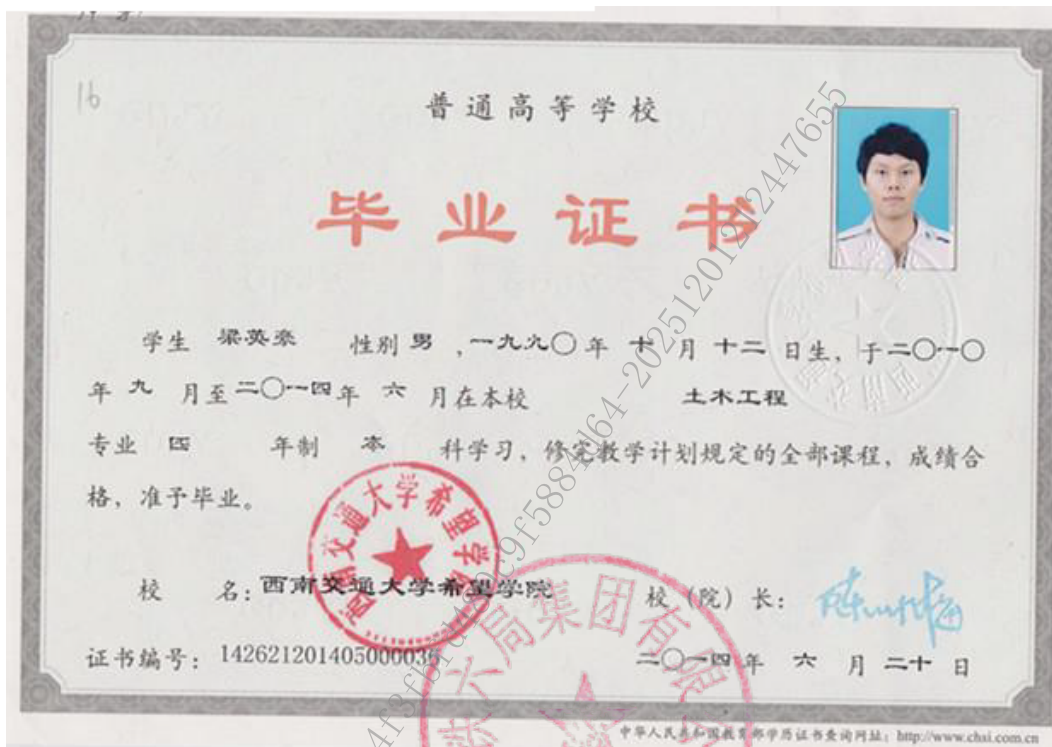 16
普通高等学校
毕业证书
学生 梁英豪 性别 男 ,一九九〇年 十 月 十二 日生, 于二〇一〇
年 九 月至二〇一四年 六 月在本校 土木工程
专业 四 年制 本 科学习, 修完教学计划规定的全部课程, 成绩合
格, 准予毕业。
西南交通大学希望学院
校 名: 西南交通大学希望学院 校 (院) 长:
证书编号: 142621201405000036 二〇一四年 六 月 二十 日
六局集团有限
中华人民共和国教育部学历证书查询网址: http://www.chsi.com.cn